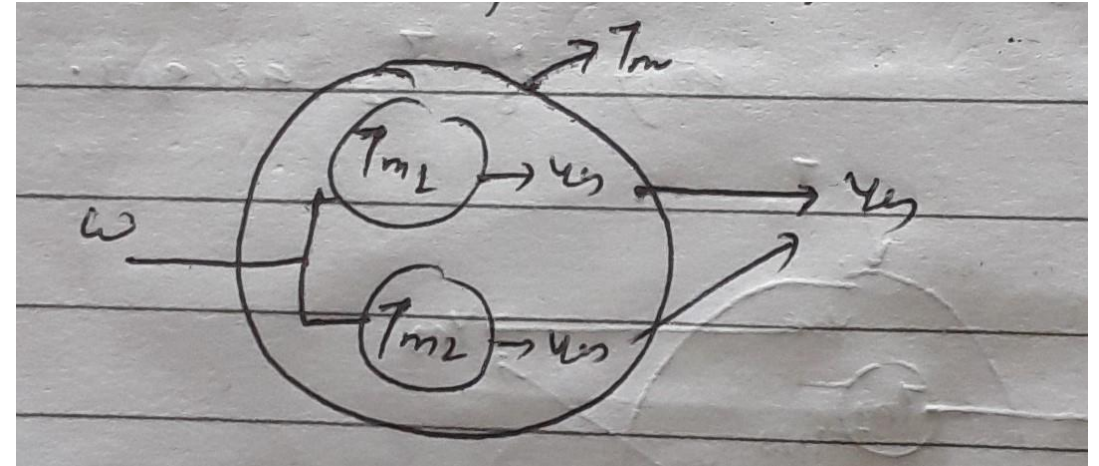 Tm
Tm1 → yes
yes
ω
Tm2 → yes